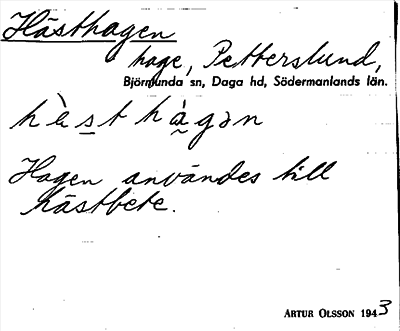 Hästhagen
hage, Petterslund,
Björnlunda sn, Daga hd, Södermanlands län.
hä̀st hà̰gən
Hagen användes till
hästbete.
ARTUR OLSSON 1943